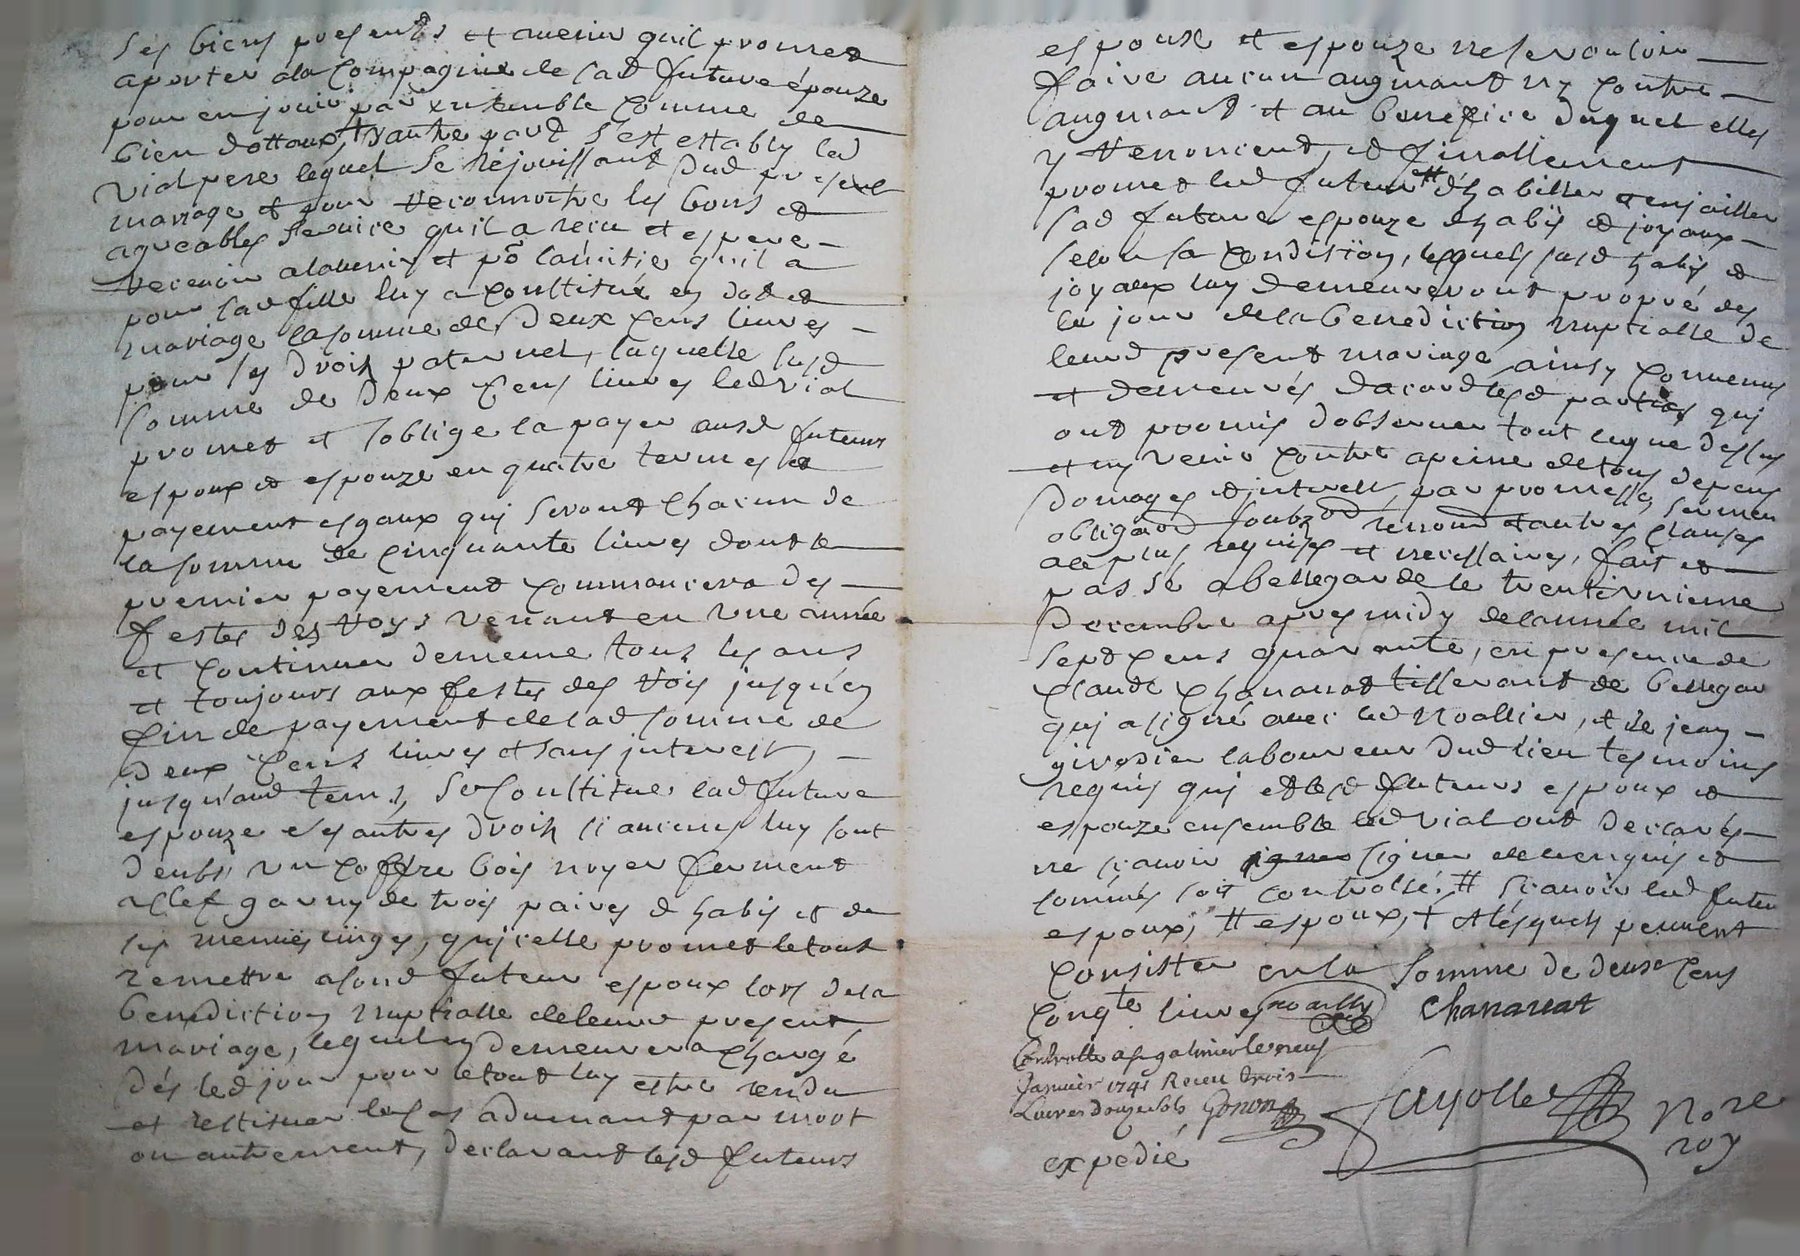 ses biens presents et avenir quil promet
aporter ala Compagnie de lad future épouze
pour en jouir par ensemble comme de
bien dottaux, d'autre part s'est estably led
Vial pere lequel se réjouissant dud present
mariage et pour reconnoitre les bons et
agreables service quil a receu et espere
recevoir alavenir et po^r lamitie quil a
pour lad fille luy a Constitué en dot et
mariage la somme de deux Cens livres
pour ses droits paternel, laquelle susd
somme de deux Cens livres led Vial
promet et soblige la payer ausd futeurs
espoux et espouze en quatre termes et
payement esgaux qui seront Chacun de
la somme de Cinquante livres dont le
premier payement Commancera des
festes des Roys venant en une année
et Continuer dememe tous les ans
et toujours aux festes des Rois jusqu'en
fin de payement de lad somme de
deux Cens livres et sans interest,
jusquaud tems, se Constitue lad future
espouze ses autres droits si aucuns luy sont
deubs, un Coffre bois noyer ferment
a Clef garny de trois paires d habis et de
ses menues linges, qu'icelle promet le tout
remettre a sond futeur espoux lors de la
benediction nuptialle de leur present
mariage, lequel en demeurera Chargé
dés led jour pour le tout luy estre rendu
et restituer le Cas advenant par mort
ou autrement, declarant lesd futeurs
espoux et espouze ne se vouloir
faire aucun augmant ny Contre
augmant et au benefice duquel elles
y renoncent, et finallement
promet led futeur # d'habiller et enjoailler
sad future espouze d habis et joyaux
selon sa Condistion, lesquels susd habis et
joyaux luy demeureront propre des
le jour de la benediction nuptialle de
leurd present mariage ainsy Convenus
et demeurés dacord lesd parties qui
ont promis dobserver tout ce que dessus
et ny venir Contre apeine de tous depens
domages et interest, par promesse, sermen
obliga^on soubz^on renon^on et autres Clauses
a ce plus requises et necessaires, fait et
passé a bellegarde le trentieunieme
decembre apres midy delannée mil
sept Cens quarante, en presence de
Claude Chanavat tisserant de bellegar
qui a signé avec led Noallier, et de jean
girodier laboureur dud lieu tesmoins
requis qui et lesd futeurs espoux et
espouze ensemble led Vial ont declarés
ne scavoir signer de ce enquis et
sommés soit Controllé, # scavoir led futeu
espoux, # espoux, + et lesquels peuvent
Consister en la somme de deux Cens
Cinq^te livres noailly Chanavat
Controllé a St galmier le neuf
Janvier 1741 Receu trois
Livres douze sols Gonon
Fayolle No^re
roy
expedié